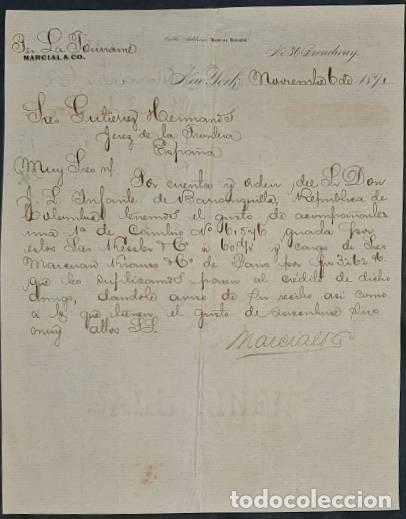 Per La Touraine
Cable Address "Marcial Broker"
MARCIAL & CO.
No 36 Broadway.
New York, Noviembre 6 de 1891
Sres Gutierrez Hermanos
Jerez de la Frontera
España
Muy Sres nt.
Por cuenta y orden del Sr Don
J. L. Infante de Barranquilla, República de
Colombia tenemos el gusto de acompañarles
una 1ª de Cambio No 61546 girada por
estos Sres Kessler & Co á 60 d/v y cargo de Sres
Marcuard Krauss & Co de Paris por
que les suplicamos pasen al crédito de dicho
amigo, dandole aviso de su recibo asi como
a la que tienen el gusto de suscribirse Sus
muy attos SS.
Marcial & Co
todocoleccion.net